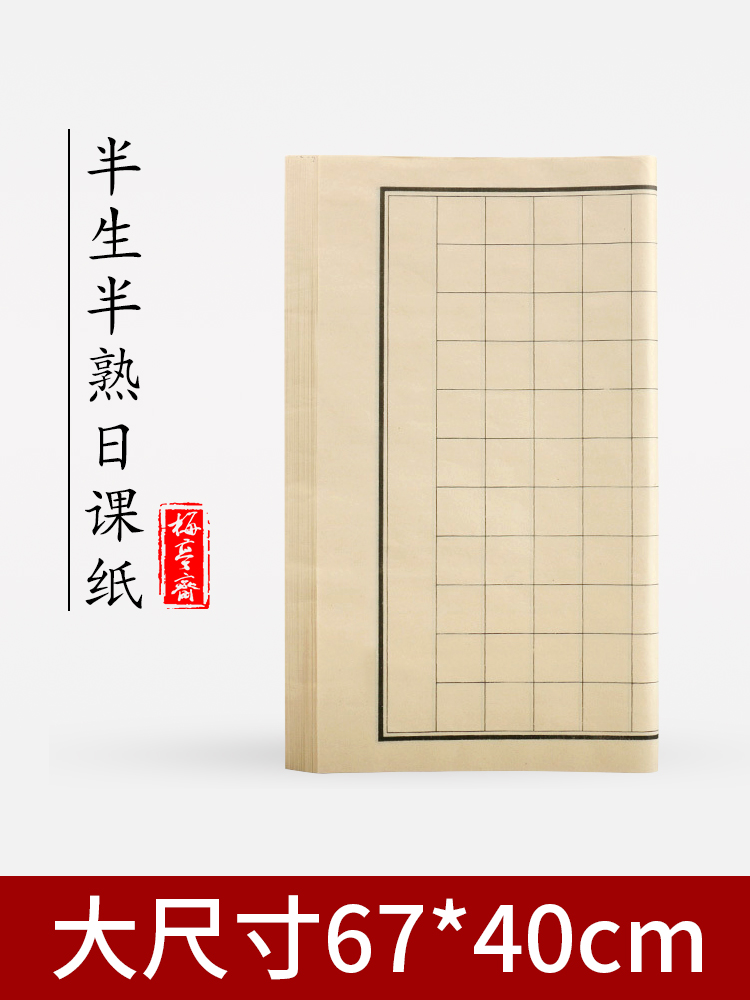 半生半熟日课纸
梅亭斋
大尺寸67*40cm